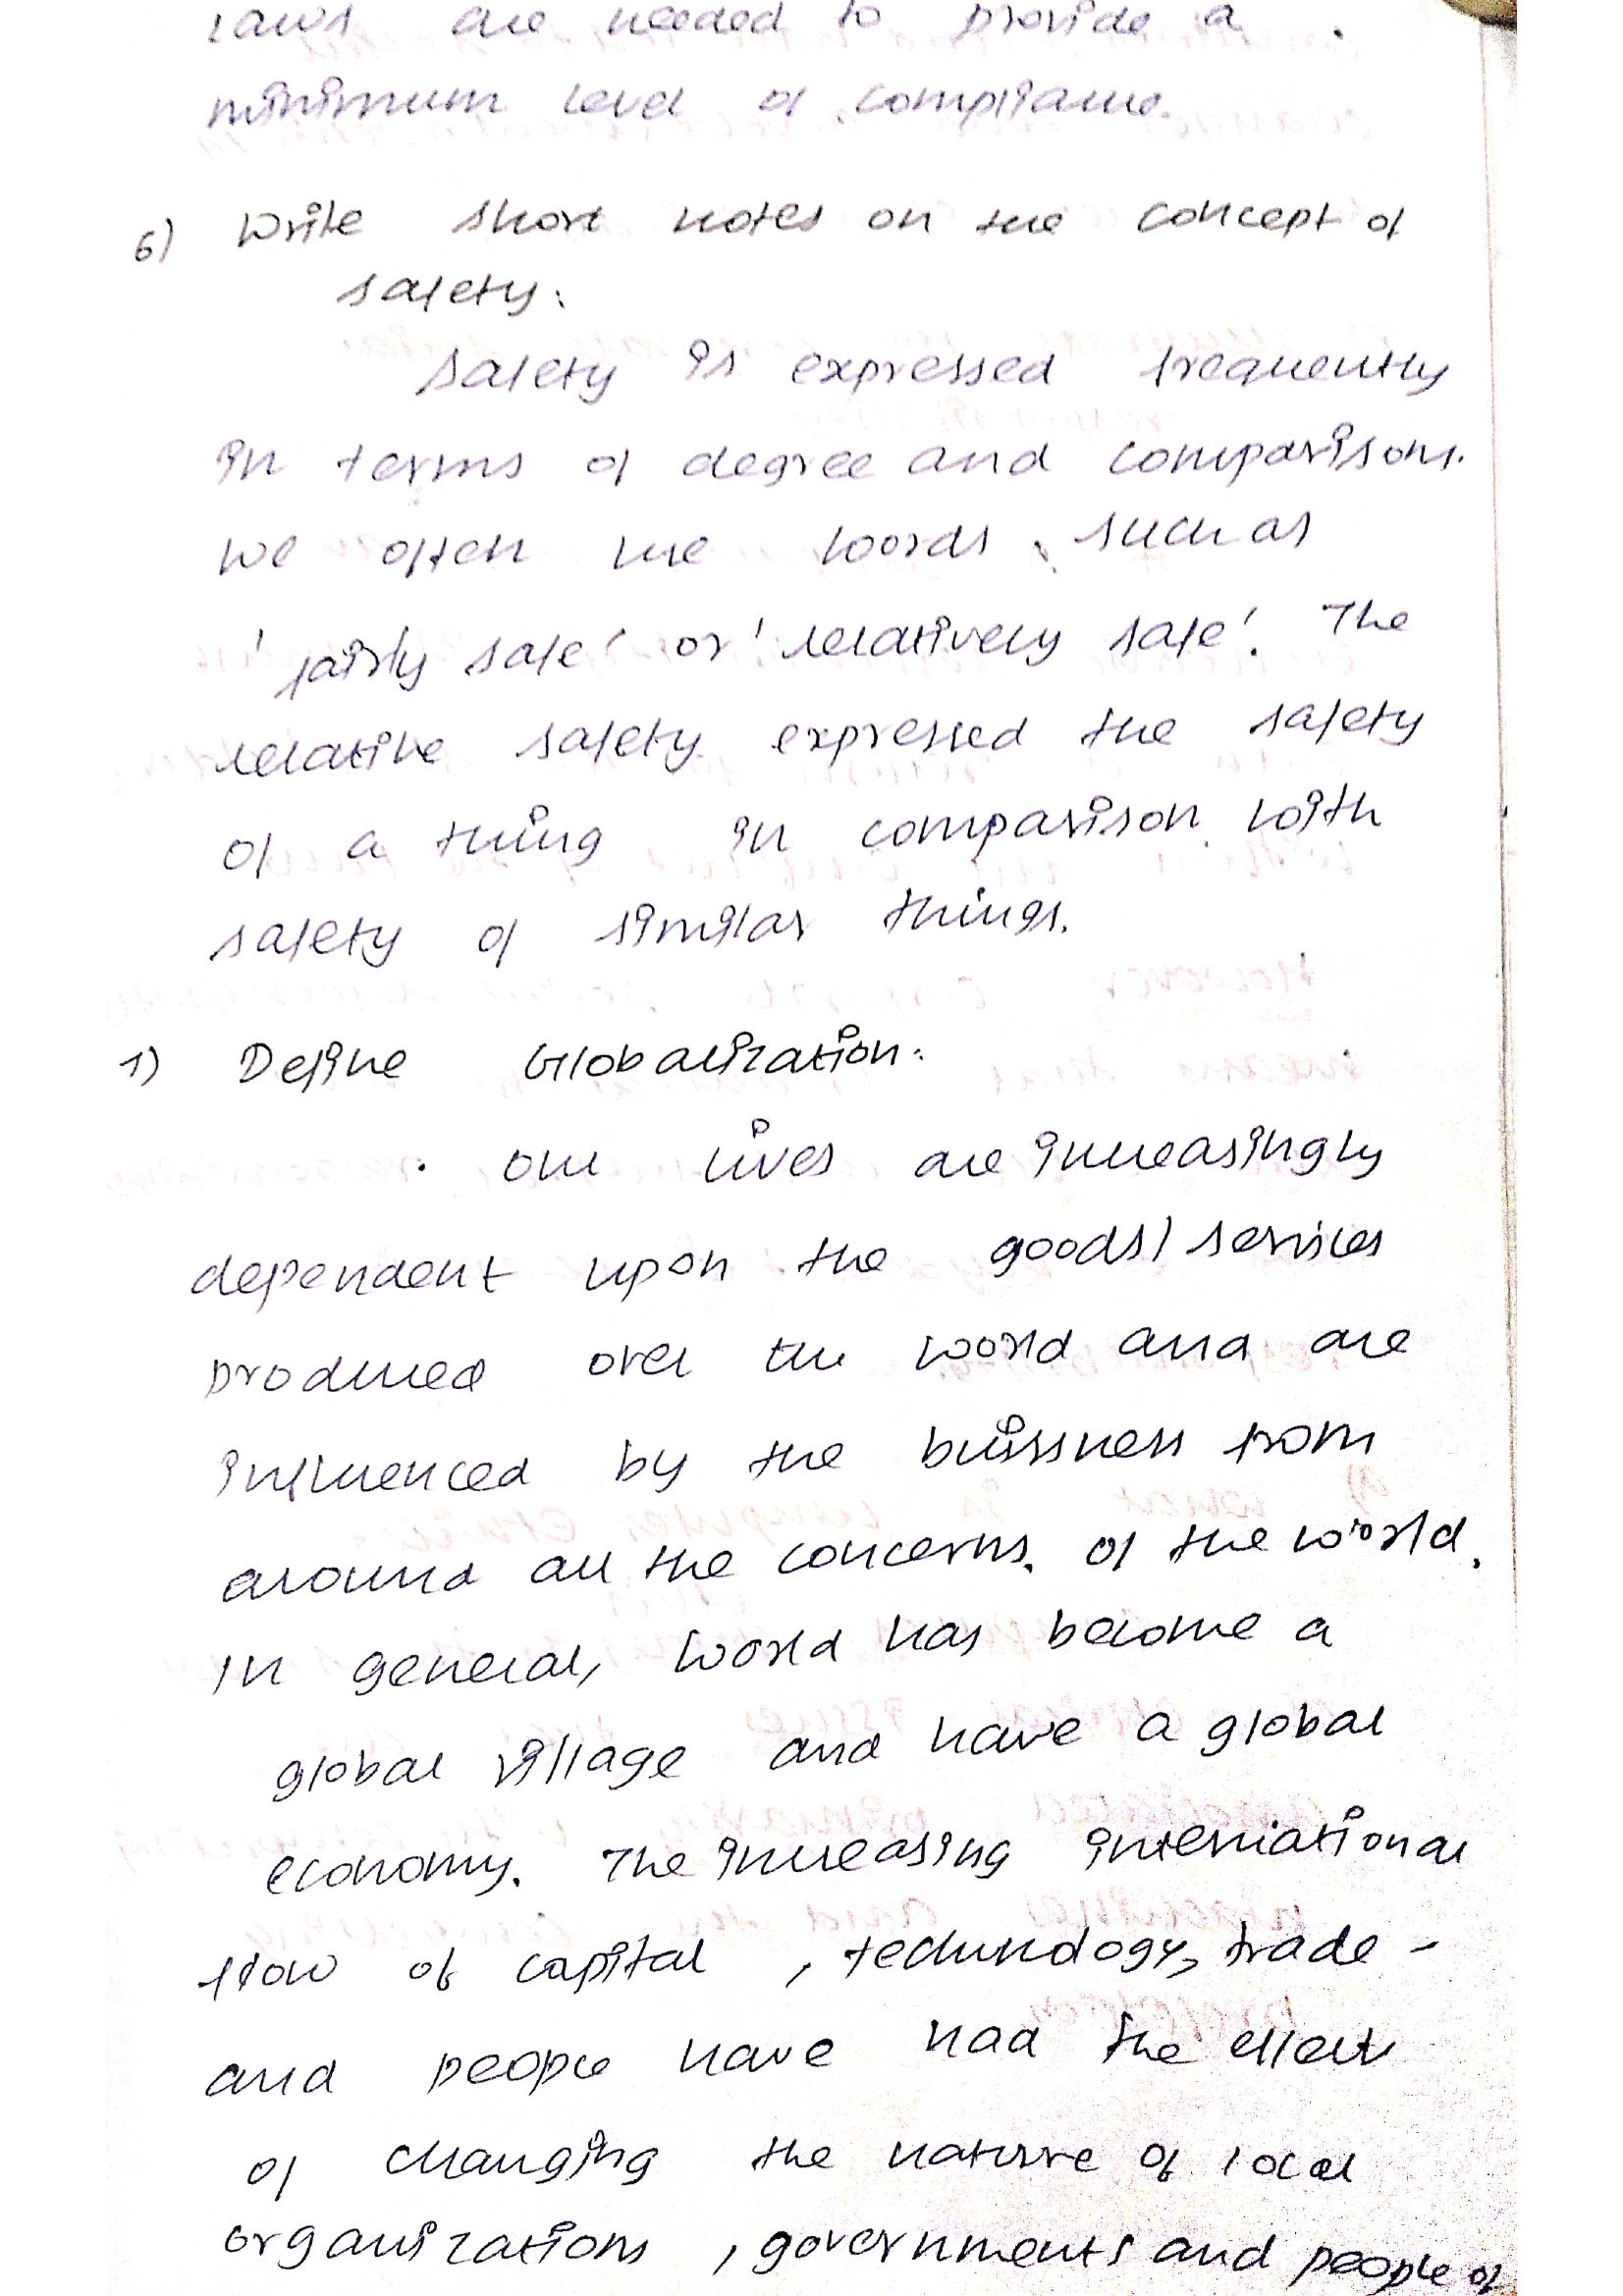 laws are needed to provide a
minimum level of compliance.
6) Write short notes on the concept of
safety:
Safety is expressed frequently
in terms of degree and comparisons.
We often use words such as
'fairly safe' or 'relatively safe'. The
relative safety expressed the safety
of a thing in comparison with
safety of similar things.
1) Define Globalization:
Our lives are increasingly
dependent upon the goods/services
produced over the world and are
influenced by the buissness from
around all the concerns. of the world.
In general, World has become a
global village and have a global
economy. The increasing international
flow of capital, technology, trade -
and people have had the effect
of changing the nature of local
organizations, governments and people of